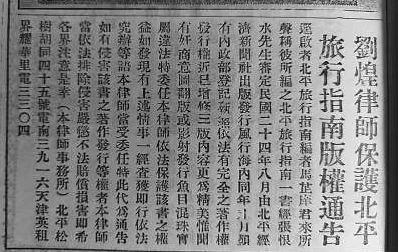 劉煌律師保護北平
旅行指南版權通告
逕啟者北平旅行指南編者馬芷庠君來所
聲稱彼所編之北平旅行指南一書經張恨
水先生審定民國二十四年八月由北平經
濟新聞社出版發行風行海內同年十月頒
有內政部登記執照依法有完全之著作權
發行權近已增修三版內容更爲精美惟聞
有奸商意圖翻版或影射發行魚目混珠實
屬違法特委任本律師依法保護該書之權
益如發現有上述情事一經查獲即行依法
究辦等語本律師當受委任特此代爲通告
如有侵害該書之著作發行等權者本律師
當依法排除侵害嚴懲不法賠償損害即希
各界注意是幸（本律師事務所）北平松
樹胡同四十五號電南三九一六天津英租
界耀華里電三三〇四